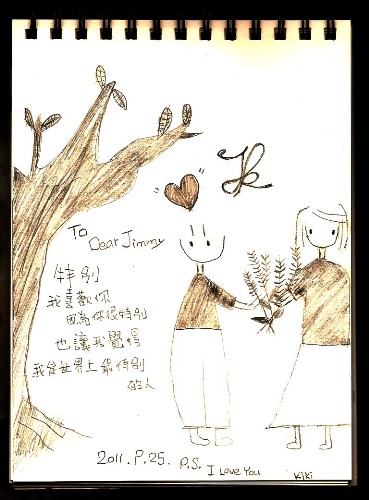 To
Dear Jimmy
特別
我喜歡你
因為你很特別
也讓我覺得
我是世界上最特別
的人
2011.P.25.
P.S.
I Love You
Kiki